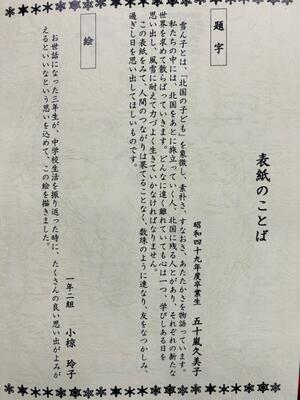 表紙のことば
題字
昭和四十九年度卒業生 五十嵐久美子
雪ん子とは、「北国の子ども」を象徴し、素朴さ、すなおさ、あたたかさを物語っています。
私たちの中には、北国をあとに旅立っていく人、北国に残る人とがあり、それぞれの新たな
世界を求めて散らばっていきます。どんなに遠く離れていても心は一つ、学びしある日を
思い出し、風雪に耐えて力づよく生きていかなければなりません。
この表紙をみて、人間のつながりは果てることなく、数珠のように連なり、友をなつかしみ、
過ぎし日を思い出してほしいものです。
絵
一年二組 小椋 玲子
お世話になった三年生が、中学校生活を振り返った時に、たくさんの良い思い出がよみが
えるといいなという思いを込めて、この絵を描きました。